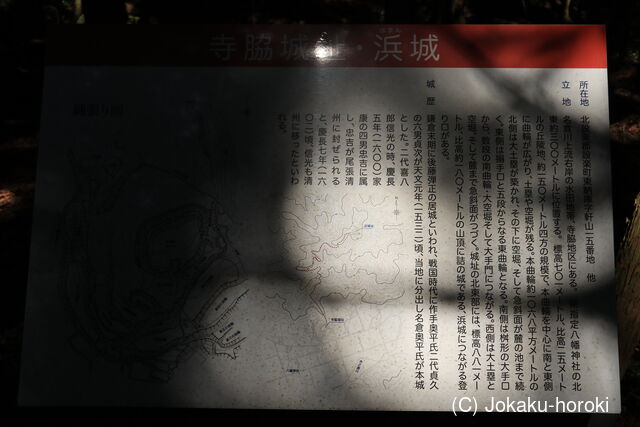 寺脇城址・浜城
所在地 北設楽郡設楽町東納庫字軒山二五番地 他
立 地 名倉川上流右岸の水田地帯、寺脇地区にある。 指定八幡神社の北
東約三〇〇メートルに位置する。標高七〇一メートル、比高二五メート
ルの丘陵地、約一五〇メートル四方の規模で、本曲輪を中心に南と東側
に曲輪が広がり、土塁や空堀が残る。本曲輪約一〇六八平方メートルの
北側は大土塁が築かれ、その下に空堀、そして急斜面が麓の池まで続
く。東側は搦手口と五段からなる東曲輪となる。南側は桝形の大手口
から、数段の南曲輪・大空堀そして大手門につながる。西側は大土塁と
空堀、そして麓まで急斜面がつづく。城址の北東部には、標高八八一メー
トル、比高約一八〇メートルの山頂に詰の城である、浜城につながる登
り口がある。
城 歴
鎌倉末期に後藤弾正の居城といわれ、戦国時代に作手奥平氏二代貞久
の六男貞次が天文元年(一五三二)頃、当地に分出し名倉奥平氏が本城
とした。二代喜八
郎信光の時、慶長
五年(一六〇〇)家
康の四男忠吉に属
し、忠吉が尾張清
州に封ぜられる
と、慶長七年(一六
〇二)頃、信光も清
州に移ったといわ
れる。
縄張り図
(C) Jokaku-horoki